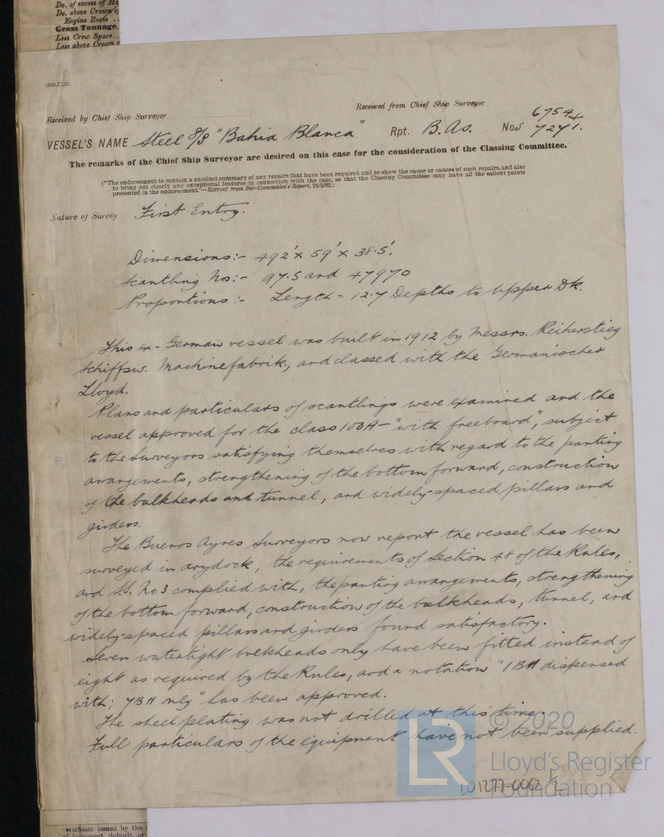 Do. of excess of
Do. above Crown of
Engine Room ..
Gross Tonnage
Less Crew Space..
Less above Crown
Received by Chief Ship Surveyor
Received from Chief Ship Surveyor
VESSEL'S NAME Steel S/S "Bahia Blanca" Rpt. B.As. Nos 6754 & 7271.
The remarks of the Chief Ship Surveyor are desired on this case for the consideration of the Classing Committee.
(*The endorsement to contain a succinct summary of any repairs that have been required and to show the cause or causes of such repairs, and also
to bring out clearly any exceptional features in connection with the case, so that the Classing Committee may have all the salient points
presented in the endorsement."—Extract from Sub-Committee's Report, 24/5/92.)
Nature of Survey First Entry.
Dimensions:- 492' x 59' x 38.5'.
Scantling Nos:- 97.5 and 47970
Proportions:- Length = 12.7 Depths to Upper Dk.
This ex-German vessel was built in 1912 by Messrs. Reiherstieg
Schiffsw. Machinefabrik, and classed with the Germanischer
Lloyd.
Plans and particulars of scantlings were examined and the
vessel approved for the class 100A - "with freeboard", subject
to the Surveyors satisfying themselves with regard to the panting
arrangements, strengthening of the bottom forward, construction
of the bulkheads and tunnel, and widely-spaced pillars and
girders.
The Buenos Ayres Surveyors now report the vessel has been
surveyed in drydock, the requirements of Section 48 of the Rules,
and S.S. No 3 complied with, the panting arrangements, strengthening
of the bottom forward, construction of the bulkheads, tunnel, and
widely-spaced pillars and girders found satisfactory.
Seven watertight bulkheads only have been fitted instead of
eight as required by the Rules, and a notation "1BH dispensed
with; 7BH only" has been approved.
The steel plating was not drilled at this time.
Full particulars of the equipment have not been supplied.
LR
© 2020
Lloyd's Register
Foundation
W1277-0002 1/2
certificate issued by the